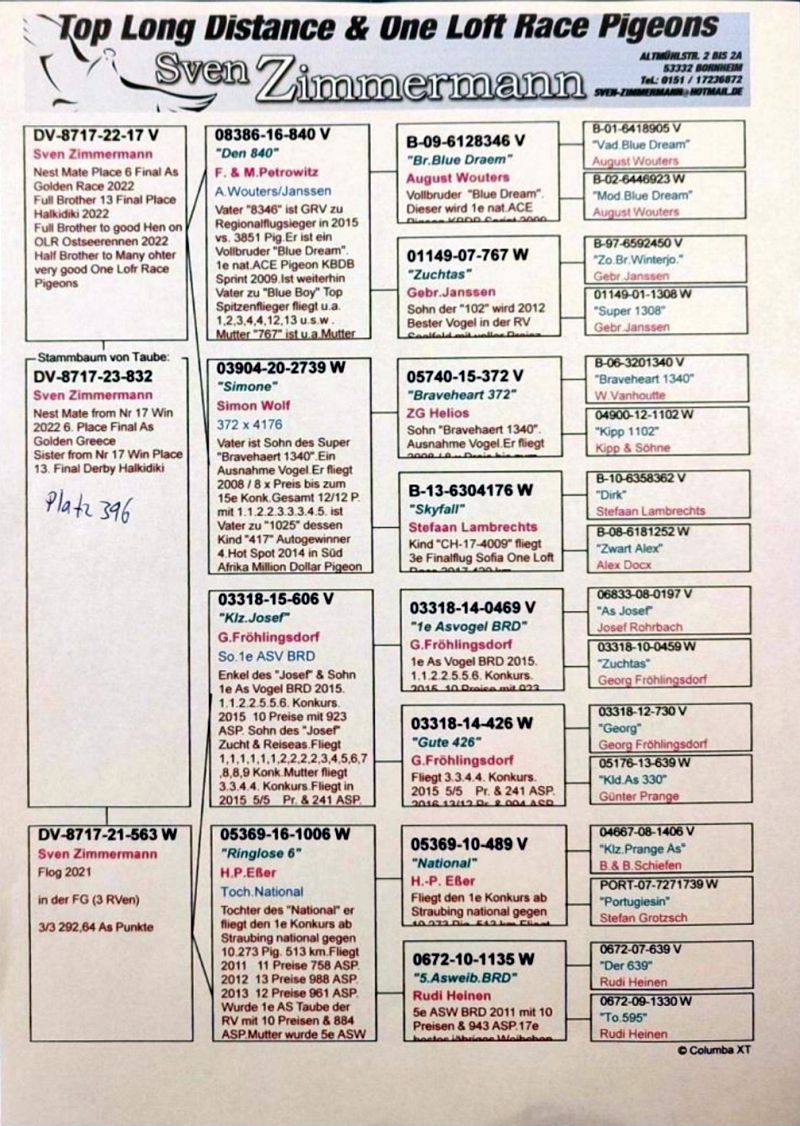 Top Long Distance & One Loft Race Pigeons
Sven Zimmermann
ALTMÜHLSTR. 2 BIS 2A
53332 BORNHEIM
TEL: 0151 / 17236872
SVEN-ZIMMERMANN@HOTMAIL.DE
DV-8717-22-17 V
Sven Zimmermann
Nest Mate Place 6 Final As
Golden Race 2022
Full Brother 13 Final Place
Halkidiki 2022
Full Brother to good Hen on
OLR Ostseerennen 2022
Half Brother to Many ohter
very good One Lofr Race
Pigeons
Stammbaum von Taube:
DV-8717-23-832
Sven Zimmermann
Nest Mate from Nr 17 Win
2022 6. Place Final As
Golden Greece
Sister from Nr 17 Win Place
13. Final Derby Halkidiki
Platz 396
DV-8717-21-563 W
Sven Zimmermann
Flog 2021
in der FG (3 RVen)
3/3 292,64 As Punkte
08386-16-840 V
"Den 840"
F. & M.Petrowitz
A.Wouters/Janssen
Vater "8346" ist GRV zu
Regionalflugsieger in 2015
vs. 3851 Pig.Er ist ein
Vollbruder "Blue Dream".
1e nat.ACE Pigeon KBDB
Sprint 2009.Ist weiterhin
Vater zu "Blue Boy" Top
Spitzenflieger fliegt u.a.
1,2,3,4,4,12,13 u.s.w .
Mutter "767" ist u.a.Mutter
03904-20-2739 W
"Simone"
Simon Wolf
372 x 4176
Vater ist Sohn des Super
"Bravehaert 1340".Ein
Ausnahme Vogel.Er fliegt
2008 / 8 x Preis bis zum
15e Konk.Gesamt 12/12 P.
mit 1.1.2.2.3.3.3.4.5. ist
Vater zu "1025" dessen
Kind "417" Autogewinner
4.Hot Spot 2014 in Süd
Afrika Million Dollar Pigeon
03318-15-606 V
"Klz.Josef"
G.Fröhlingsdorf
So.1e ASV BRD
Enkel des "Josef" & Sohn
1e As Vogel BRD 2015.
1.1.2.2.5.5.6. Konkurs.
2015 10 Preise mit 923
ASP. Sohn des "Josef"
Zucht & Reiseas.Fliegt
1,1,1,1,1,1,2,2,2,2,3,4,5,6,7
,8,8,9 Konk.Mutter fliegt
3.3.4.4. Konkurs.Fliegt in
2015 5/5 Pr. & 241 ASP.
05369-16-1006 W
"Ringlose 6"
H.P.Eßer
Toch.National
Tochter des "National" er
fliegt den 1e Konkurs ab
Straubing national gegen
10.273 Pig. 513 km.Fliegt
2011 11 Preise 758 ASP.
2012 13 Preise 988 ASP.
2013 12 Preise 961 ASP.
Wurde 1e AS Taube der
RV mit 10 Preisen & 884
ASP.Mutter wurde 5e ASW
B-09-6128346 V
"Br.Blue Draem"
August Wouters
Vollbruder "Blue Dream".
Dieser wird 1e nat.ACE
Pigeon KBDB Sprint 2009
01149-07-767 W
"Zuchtas"
Gebr.Janssen
Sohn der "102" wird 2012
Bester Vogel in der RV
05740-15-372 V
"Braveheart 372"
ZG Helios
Sohn "Bravehaert 1340".
Ausnahme Vogel.Er fliegt
2008 / 8 x Preis bis zum
B-13-6304176 W
"Skyfall"
Stefaan Lambrechts
Kind "CH-17-4009" fliegt
3e Finalflug Sofia One Loft
03318-14-0469 V
"1e Asvogel BRD"
G.Fröhlingsdorf
1e As Vogel BRD 2015.
1.1.2.2.5.5.6. Konkurs.
2015 10 Preise mit 923
03318-14-426 W
"Gute 426"
G.Fröhlingsdorf
Fliegt 3.3.4.4. Konkurs.
2015 5/5 Pr. & 241 ASP.
05369-10-489 V
"National"
H.-P. Eßer
Fliegt den 1e Konkurs ab
Straubing national gegen
0672-10-1135 W
"5.Asweib.BRD"
Rudi Heinen
5e ASW BRD 2011 mit 10
Preisen & 943 ASP.17e
B-01-6418905 V
"Vad.Blue Dream"
August Wouters
B-02-6446923 W
"Mod.Blue Dream"
August Wouters
B-97-6592450 V
"Zo.Br.Winterjo."
Gebr.Janssen
01149-01-1308 W
"Super 1308"
Gebr.Janssen
B-06-3201340 V
"Braveheart 1340"
W.Vanhoutte
04900-12-1102 W
"Kipp 1102"
Kipp & Söhne
B-10-6358362 V
"Dirk"
Stefaan Lambrechts
B-08-6181252 W
"Zwart Alex"
Alex Docx
06833-08-0197 V
"As Josef"
Josef Rohrbach
03318-10-0459 W
"Zuchtas"
Georg Fröhlingsdorf
03318-12-730 V
"Georg"
Georg Fröhlingsdorf
05176-13-639 W
"Kld.As 330"
Günter Prange
04667-08-1406 V
"Klz.Prange As"
B.& B.Schiefen
PORT-07-7271739 W
"Portugiesin"
Stefan Grotzsch
0672-07-639 V
"Der 639"
Rudi Heinen
0672-09-1330 W
"To.595"
Rudi Heinen
© Columba XT